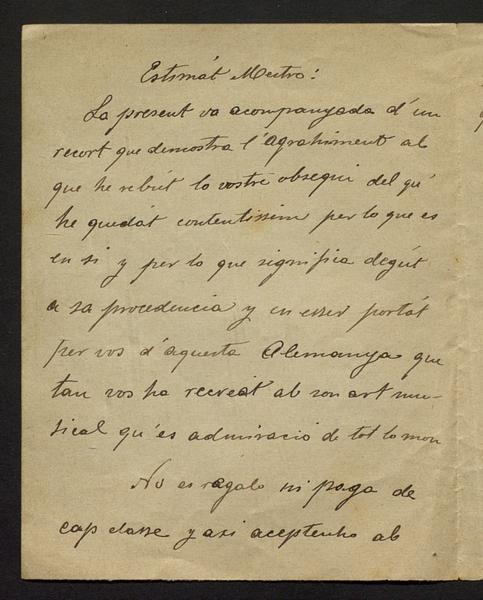 Estimát Mestre:
La present va acompanyada d'un
recort que demostra l'agrahiment ab
que he rebút lo vostre obsequi del qu'
he quedát contentissim per lo que es
en si y per lo que significa degút
a sa procedencia y en esser portát
per vos d'aquesta Alemanya que
tan vos ha recreát ab son art mu-
sical qu'es admiració de tot lo mon
No es régalo ni paga de
cap classe y axi aceptenho ab